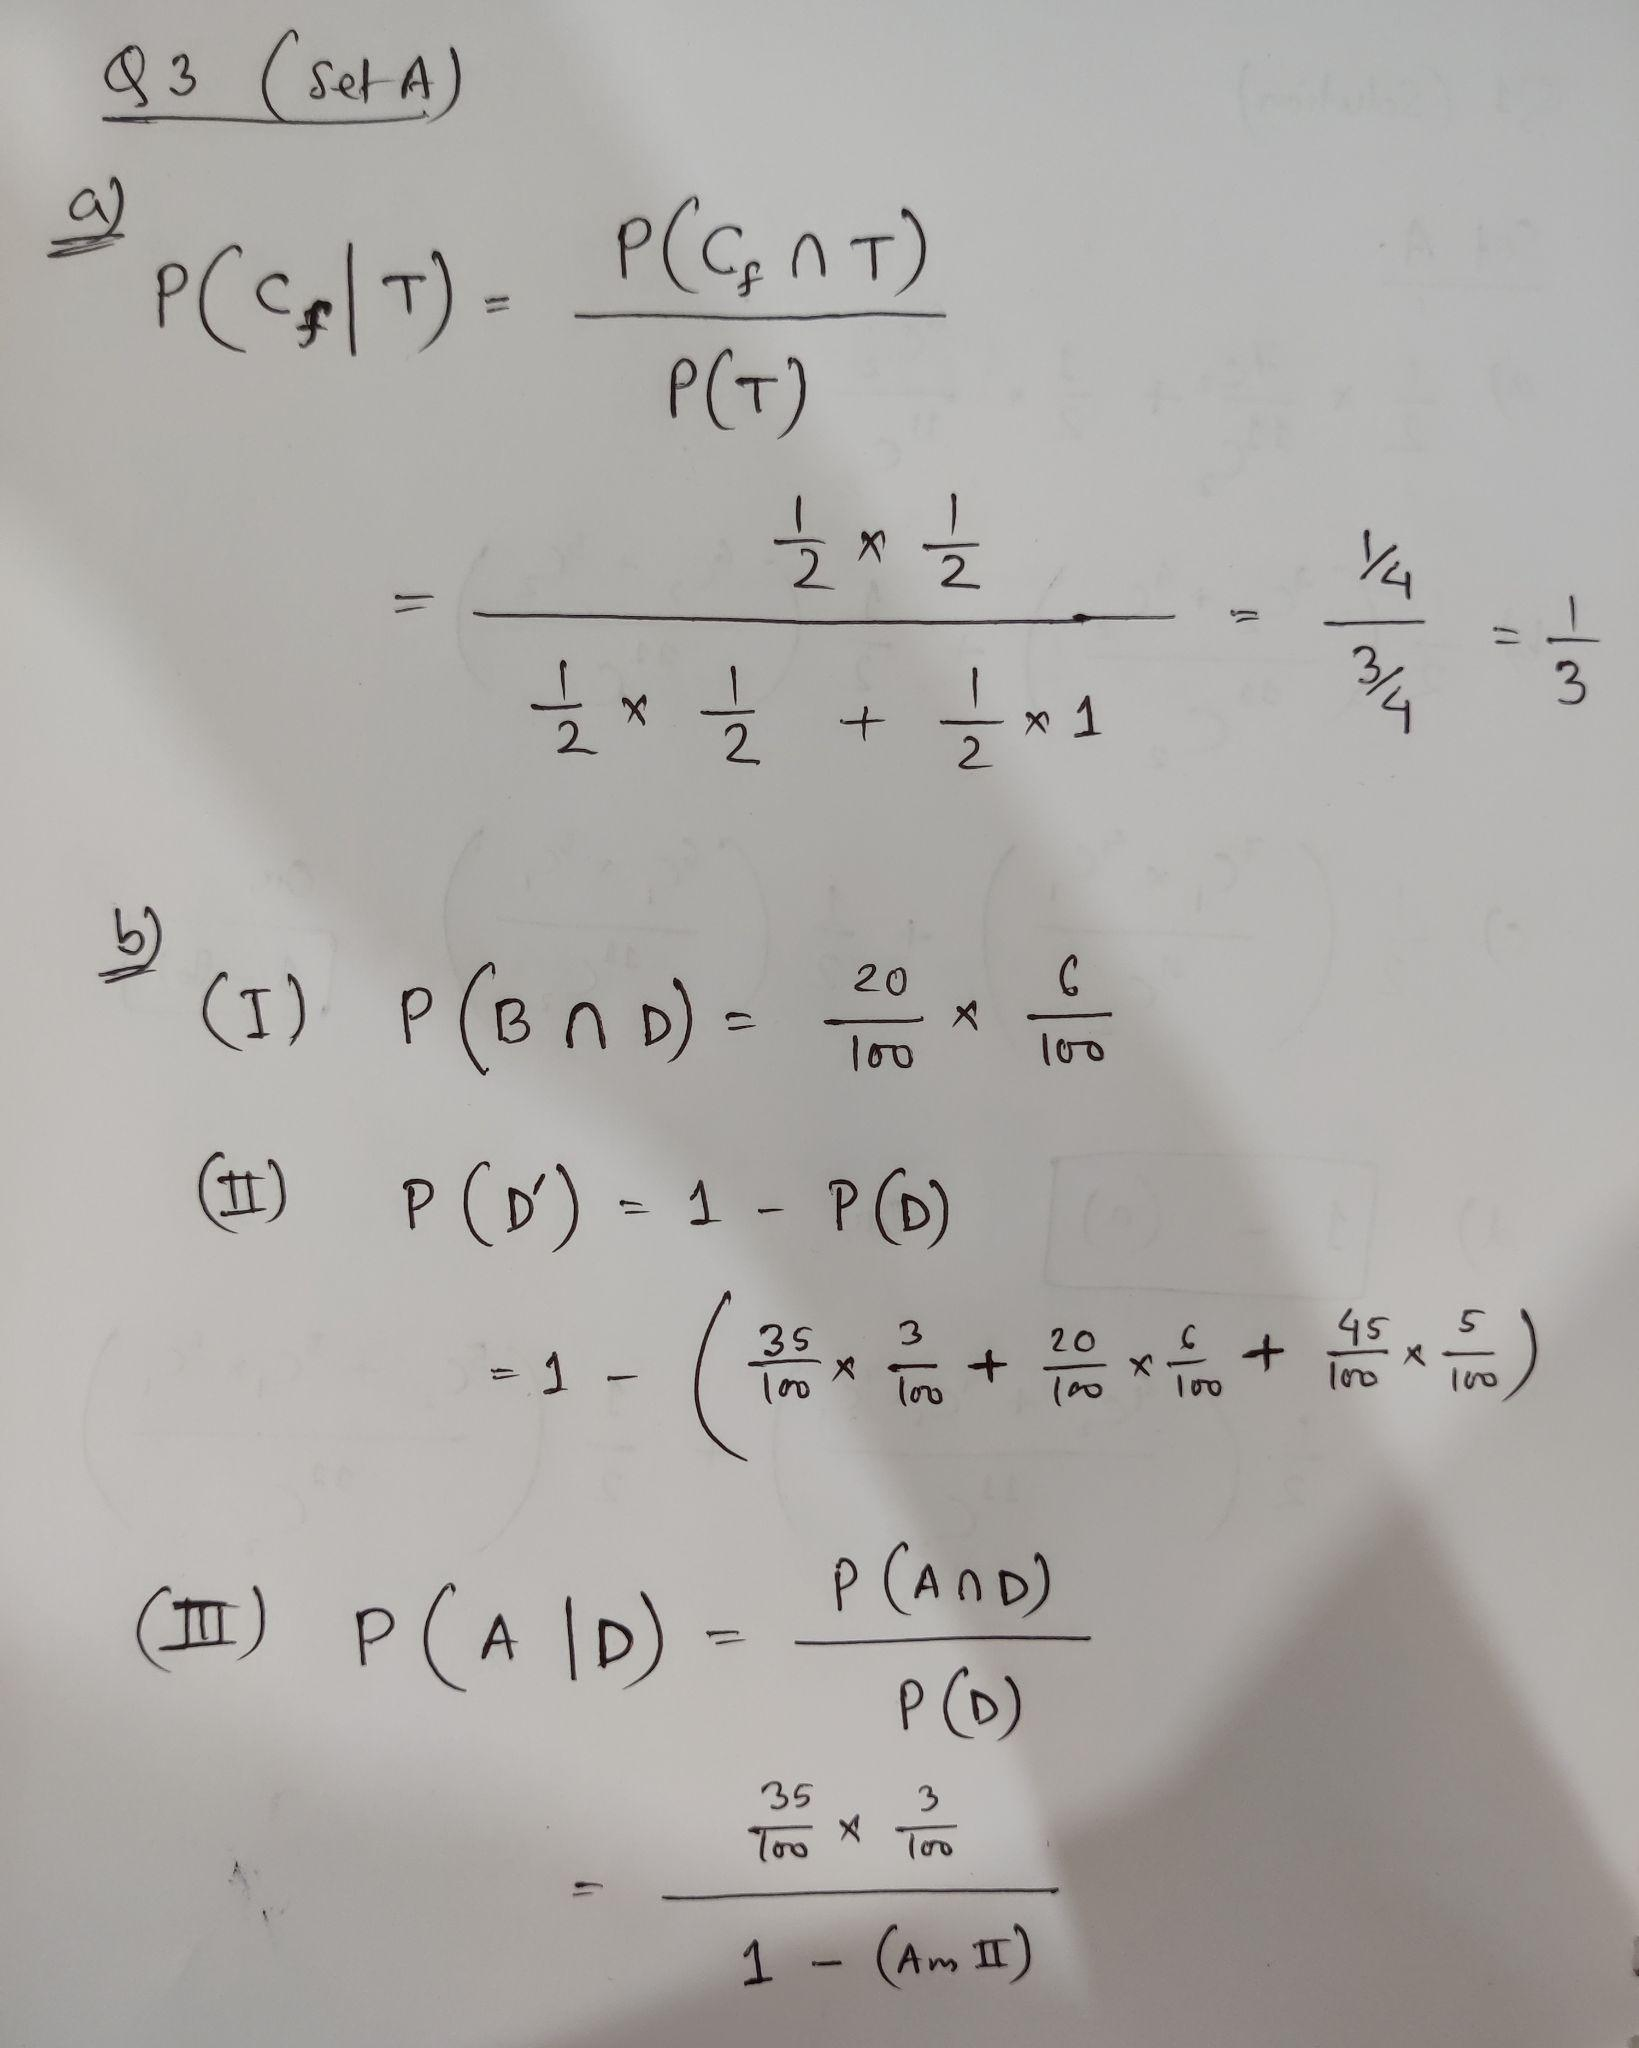 Q3 (Set A)
a)
P(C_f | T) = P(C_f ∩ T) / P(T)
= (1/2 × 1/2) / (1/2 × 1/2 + 1/2 × 1) = (1/4) / (3/4) = 1/3
b)
(I) P(B ∩ D) = 20/100 × 6/100
(II) P(D′) = 1 - P(D)
= 1 - (35/100 × 3/100 + 20/100 × 6/100 + 45/100 × 5/100)
(III) P(A | D) = P(A ∩ D) / P(D)
= (35/100 × 3/100) / (1 - (Ans II))